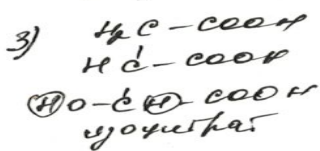 3) H₂C – COOH
HC – COOH
HO – CH – COOH
изоцитрат